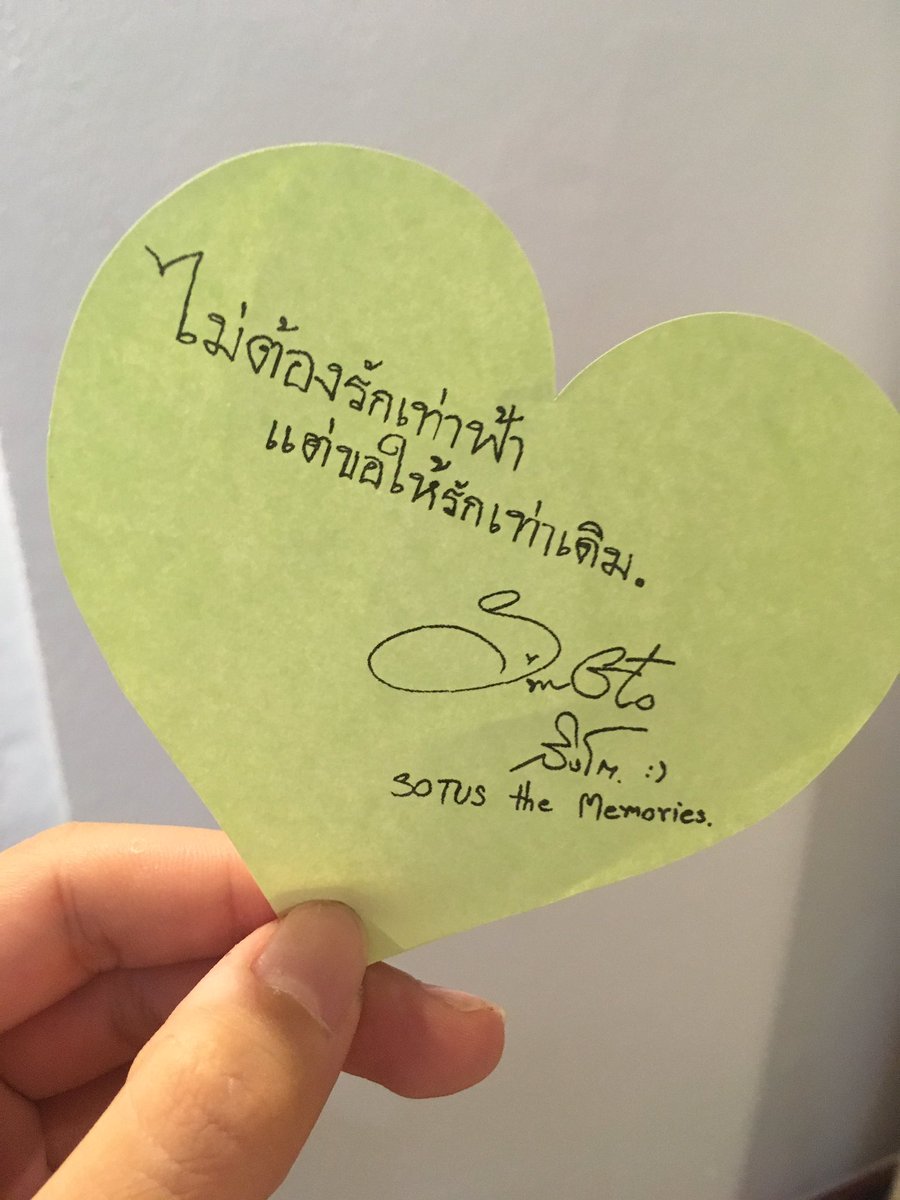 ไม่ต้องรักเท่าฟ้า
แต่ขอให้รักเท่าเดิม.
สิงโต. :)
SOTUS the Memories.